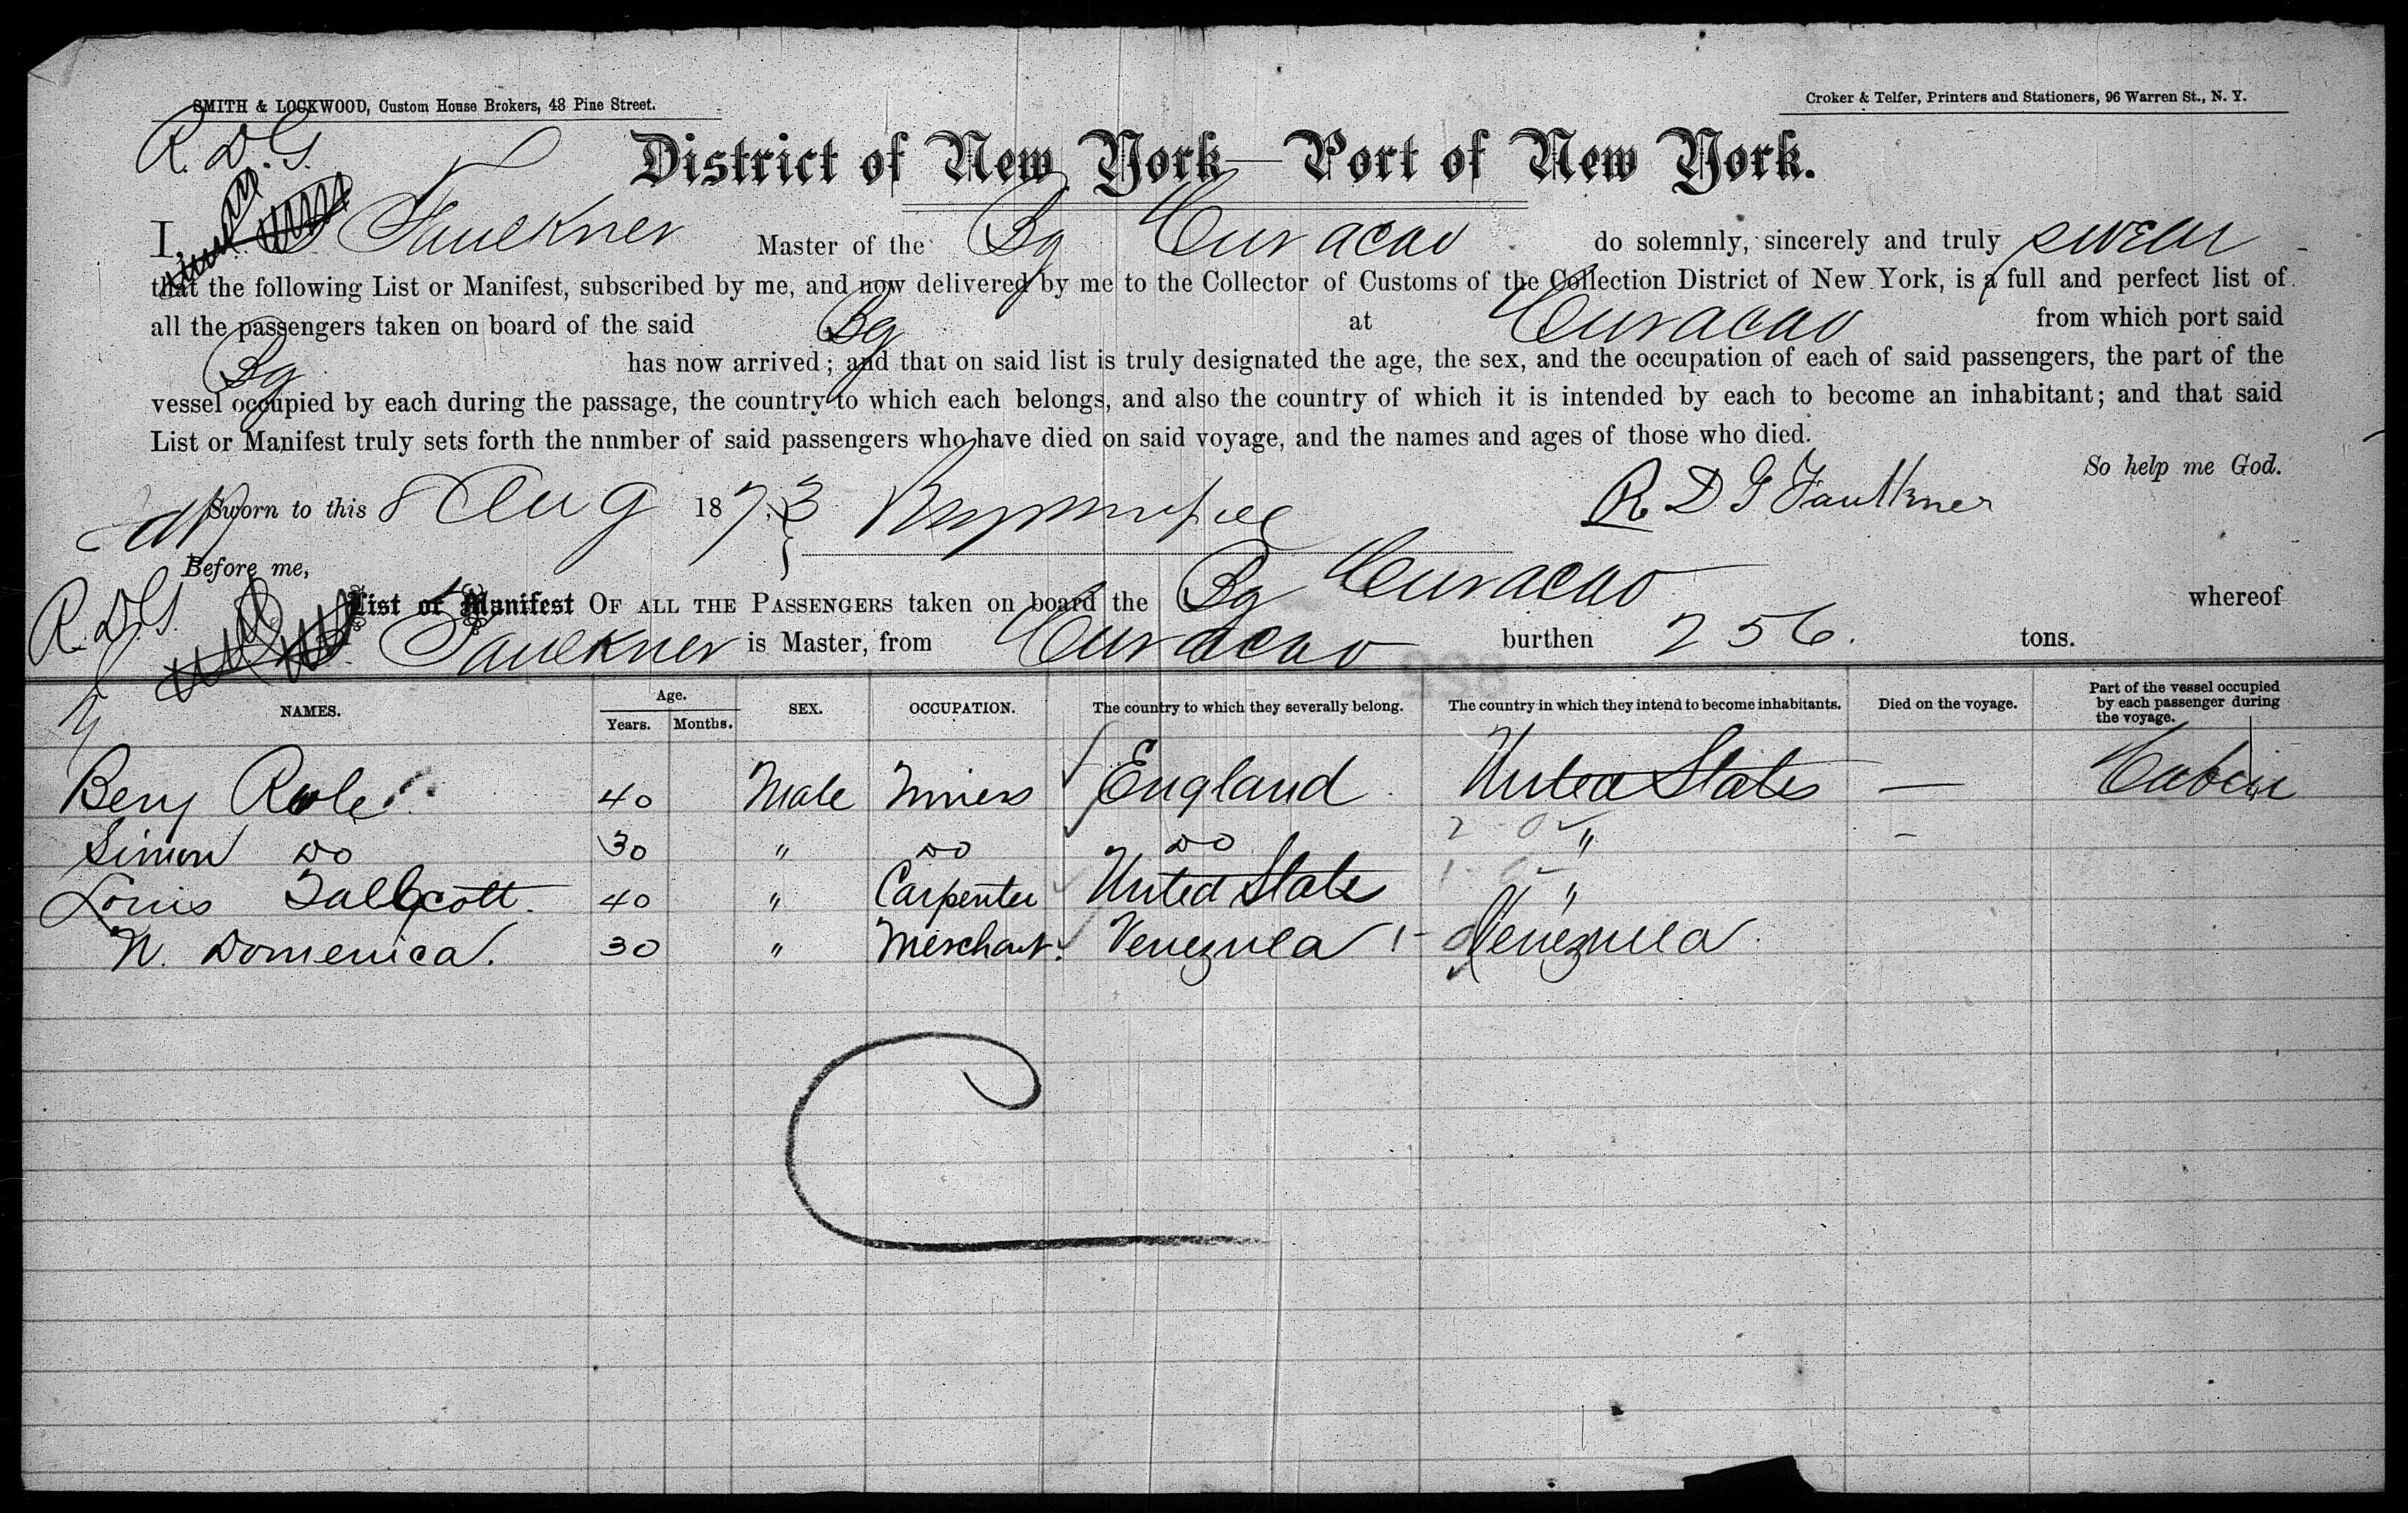 SMITH & LOCKWOOD, Custom House Brokers, 48 Pine Street.
Croker & Telfer, Printers and Stationers, 96 Warren St., N. Y.
District of New York—Port of New York.
R. D. G.
I, Faulkner Master of the Bg Curacao do solemnly, sincerely and truly swear
that the following List or Manifest, subscribed by me, and now delivered by me to the Collector of Customs of the Collection District of New York, is a full and perfect list of
all the passengers taken on board of the said Bg at Curacao from which port said
Bg has now arrived; and that on said list is truly designated the age, the sex, and the occupation of each of said passengers, the part of the
vessel occupied by each during the passage, the country to which each belongs, and also the country of which it is intended by each to become an inhabitant; and that said
List or Manifest truly sets forth the nnmber of said passengers who have died on said voyage, and the names and ages of those who died.
So help me God.
Sworn to this 8 Aug 1873 R D G Faulkner
Before me,
R. D. G.
List or Manifest OF ALL THE PASSENGERS taken on board the Bg Curacao whereof
Faulkner is Master, from Curacao burthen 256. tons.
NAMES. Age. Years. Months. SEX. OCCUPATION. The country to which they severally belong. The country in which they intend to become inhabitants. Died on the voyage. Part of the vessel occupied by each passenger during the voyage.
Benj 40 Male Miners England United States — Cabin
Simon Do 30 " Do Do " -
Louis Tallcott. 40 " Carpenter United State "
N. Domenica. 30 " Merchant. Venezuela 1- Venezuela.